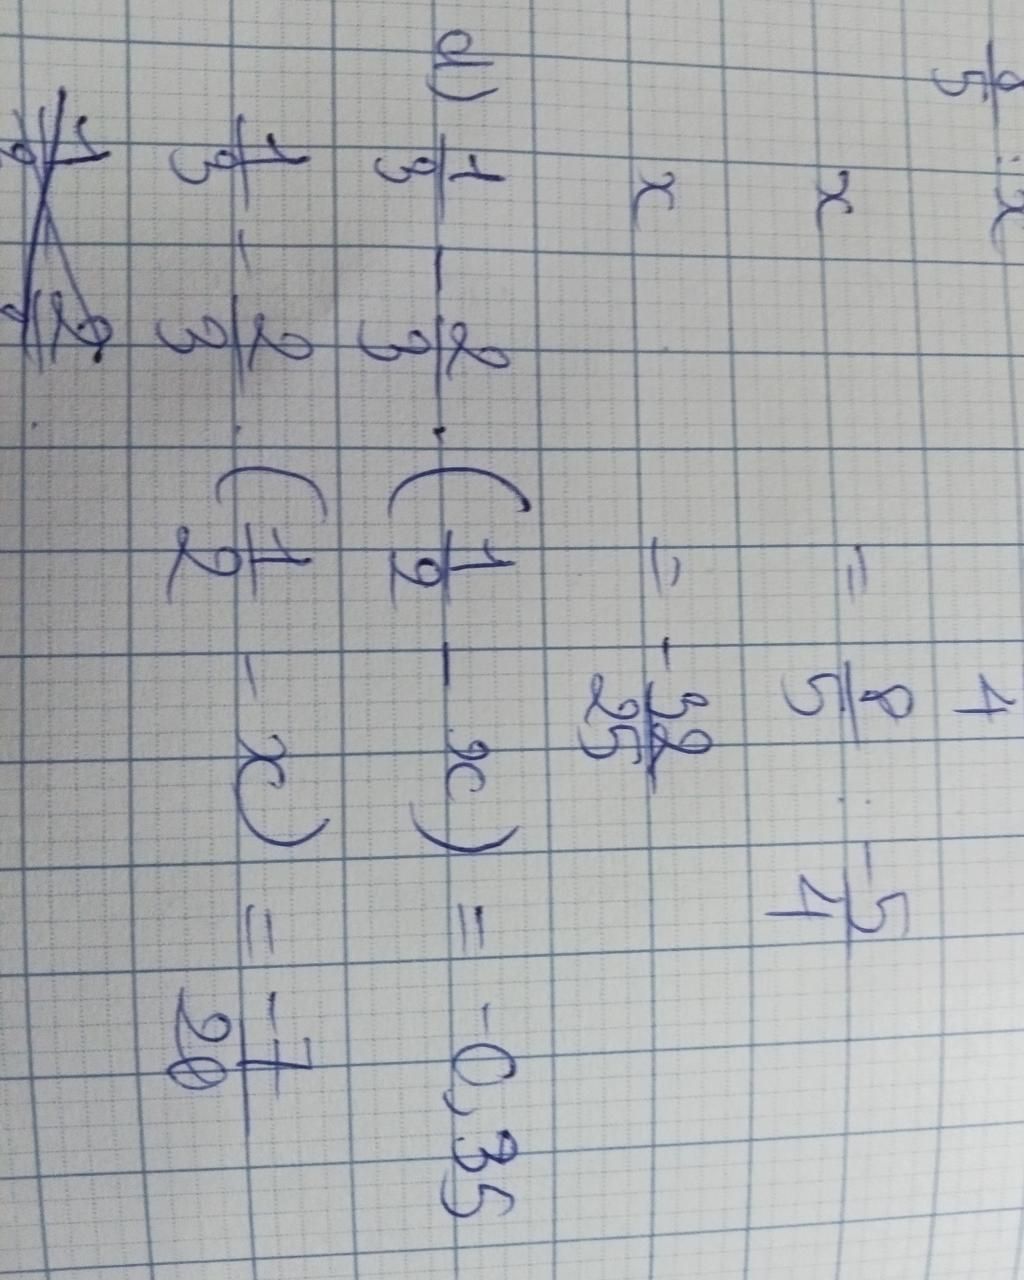 8/5 : x
4
x = 8/5 . -5/4
x = -32/25
d) 1/3 - 2/3 . (1/2 - x) = -0,35
1/3 - 2/3 . (1/2 - x) = -7/20